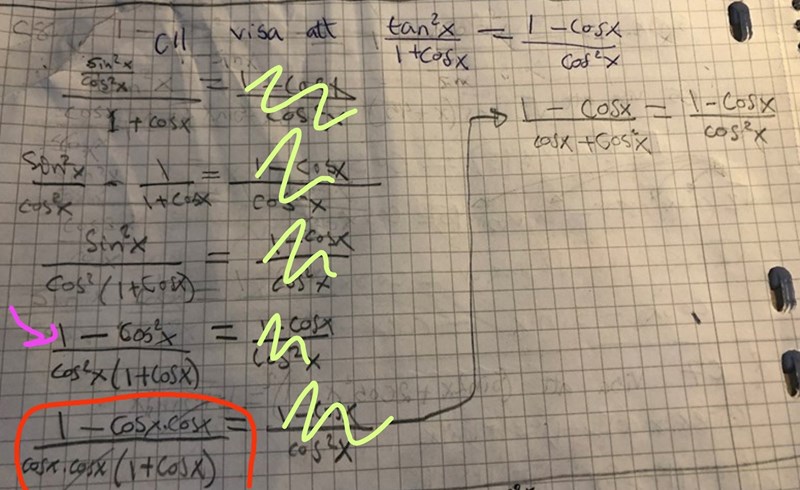 C11 visa att tan²x/1+cosx = 1-cosx/cos²x
sin²x/cos²x/1+cosx = 1-cosx/cos²x
sin²x/cos²x · 1/1+cosx = 1-cosx/cos²x
sin²x/cos²(1+cosx) = 1-cosx/cos²x
1-cos²x/cos²x(1+cosx) = 1-cosx/cos²x
1-cosx·cosx/cosx·cosx(1+cosx) = 1-cosx/cos²x
1-cosx/cosx+cos²x = 1-cosx/cos²x